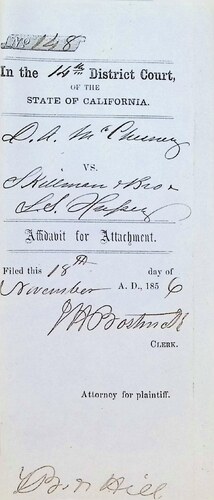 No 148
In the 14th District Court,
OF THE
STATE OF CALIFORNIA.
D. A. McCheeney
VS.
Skillman & Bro &
L. S.
Affidavit for Attachment.
Filed this 18th day of
November A. D., 1856
CLERK.
Attorney for plaintiff.
Hill